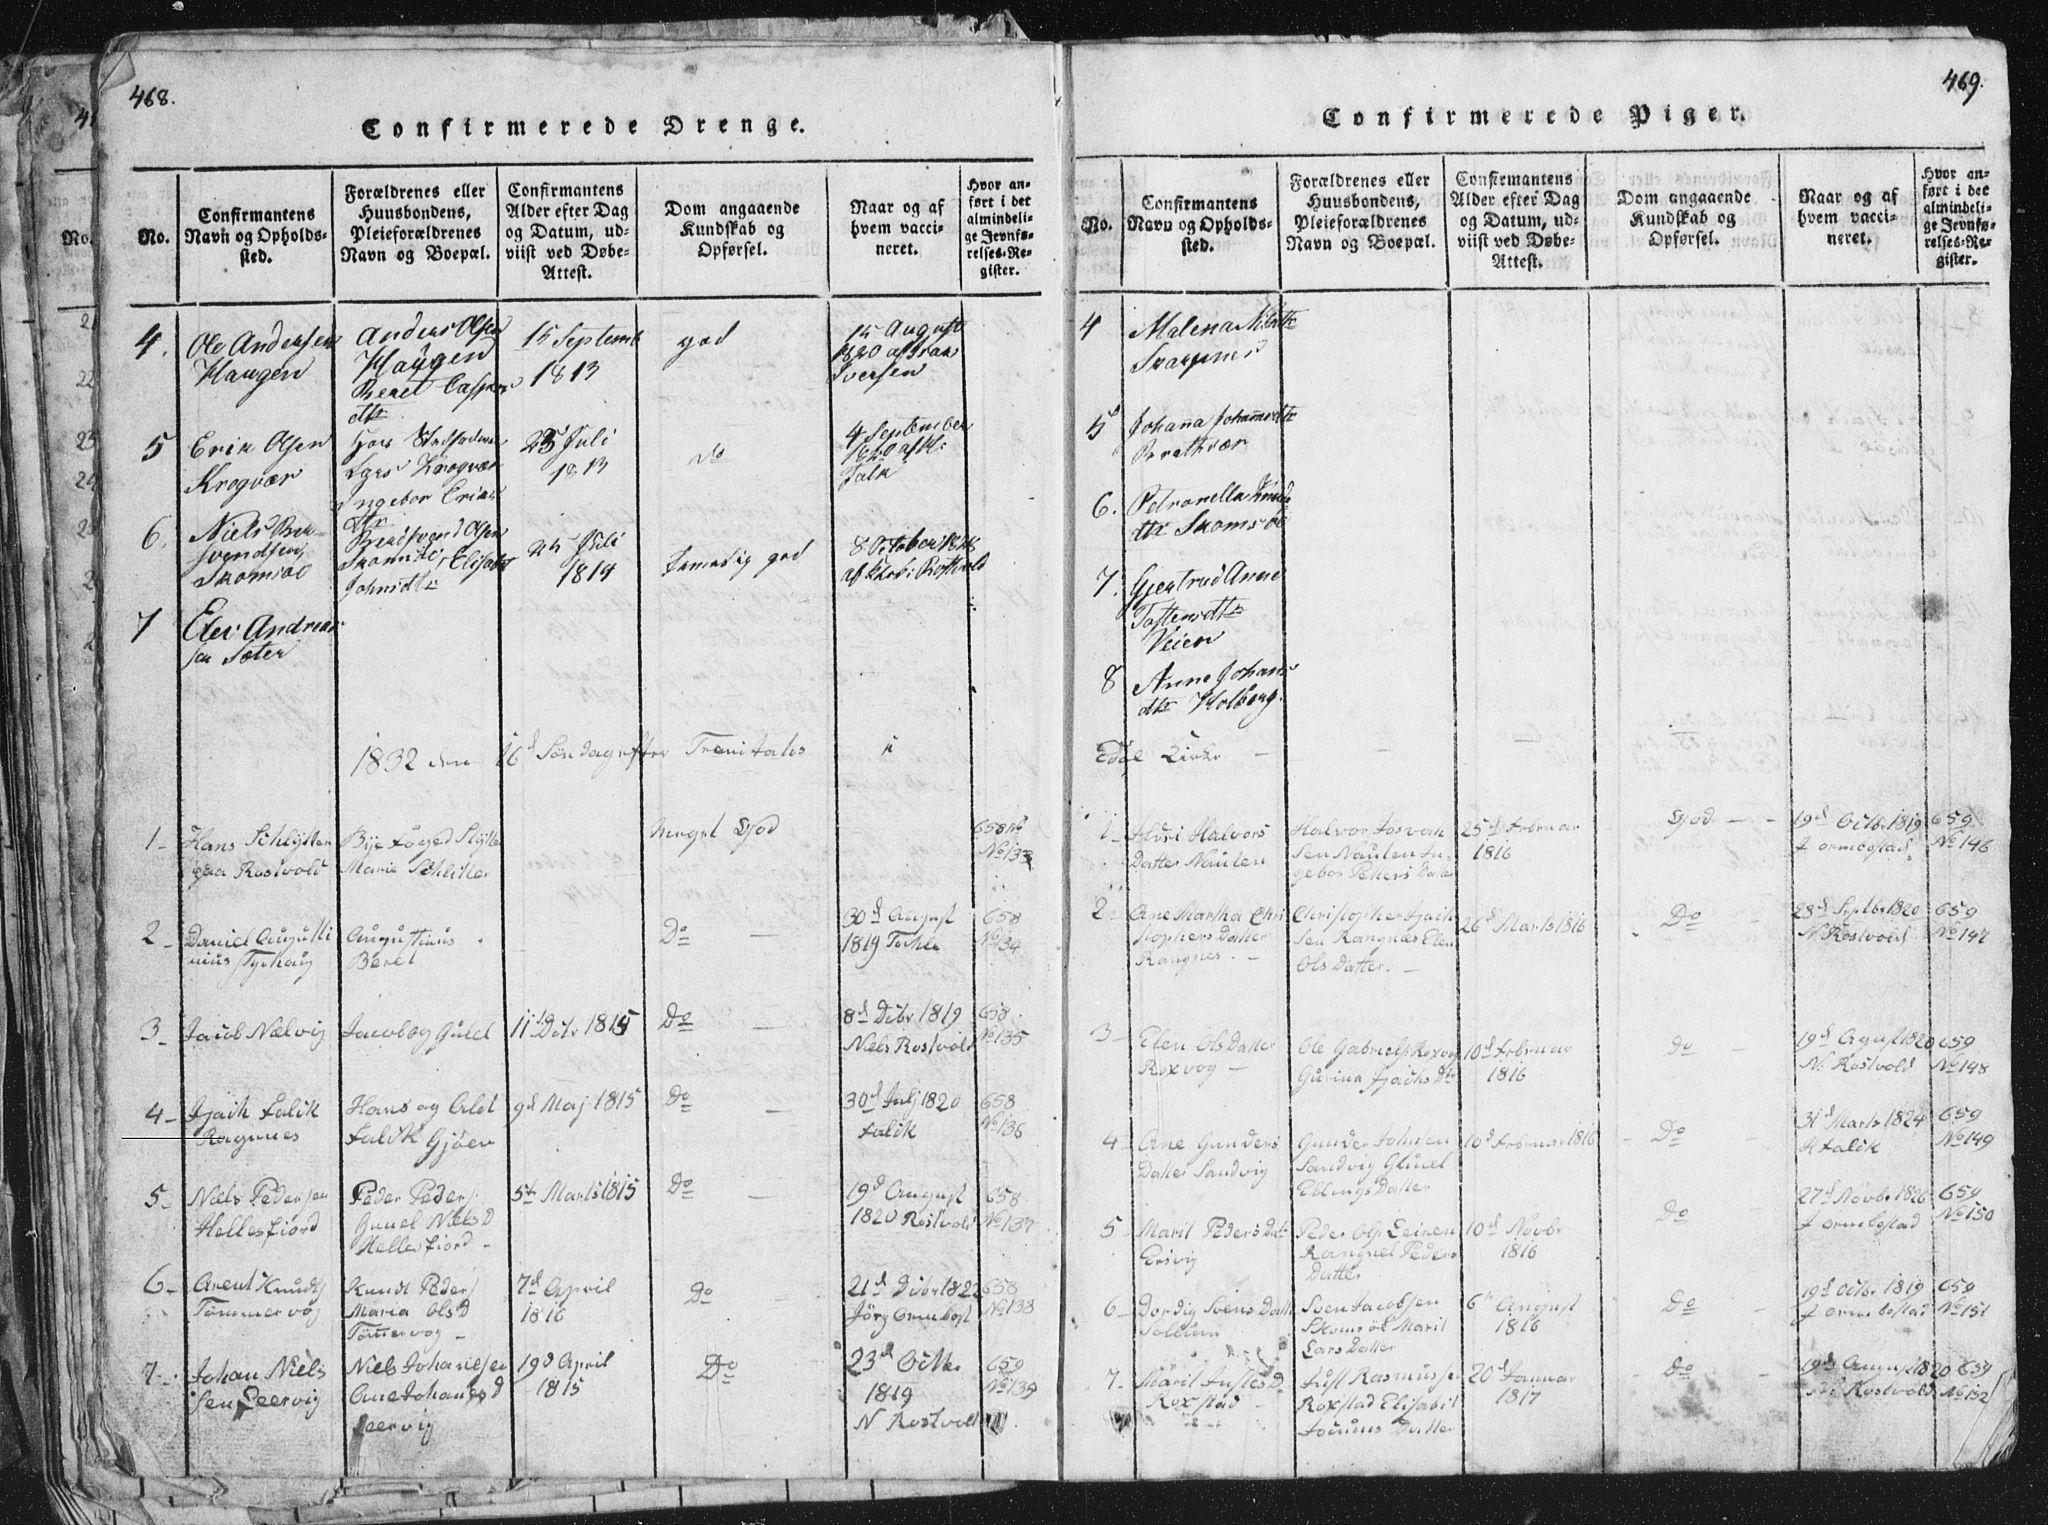 468.
Confirmerede Drenge.
No.
Confirmantens
Navn og Opholds-
sted.
Forældrenes eller
Huusbondens,
Pleieforældrenes
Navn og Boepæl.
Confirmantens
Alder efter Dag
og Datum, ud-
viist ved Døbe-
Attest.
Dom angaaende
Kundskab og
Opførsel.
Naar og af
hvem vacci-
neret.
Hvor an-
ført i det
almindeli-
ge Jevnfø-
relses-Re-
gister.
4.
Ole Andersen
Haugen
Anders Olsen
Haugen
Beret Casper
dtr
15 Septemb
1813
god
15 August
1820 af Isak
Iversen
5
Erik Olsen
Krogvær
Krogvær
Ingebor Eriks
dtr
25 Juli
1813
do
4 September
1820 af H:
Falk
6.
Niels
Svendsen
Skomsøe
Olsen
Elisabt
Johnsdtr
25 Juli
1814
temelig god
8 October 1818
Rostvold
7
Elev Andreas
sen Sæter
1832 den 16d Søndag efter Trenitatis
1-
Hans Schlytter
paa Rostvold
Byefoged Slytter
Marie Schlitter
Meget God
658
No 133
2-
Daniel Augusti
nius Tyrhaug
Augustinus
Beret
Do
30d August
1819
658
No 134
3-
Jacob Nælvig
Jacob og Guld
11d Dcbr 1815
Do
8d Dcbr 1819
Niels Rostvold
658
No 135
4-
Isaik Falik
Ragnnes
Hans og Alet
Falik Gjøen
9d Maj 1815
Do
30d Julj 1820
Falik
658
No 136
5-
Niels Pedersen
Hellesfiord
Peder Peders
Gunel Niels D
Hellesfiord-
5te Marts 1815
Do
19d August
1820 Rostvold
658
No 137
6-
Arent Knudts
Tømmervog
Knudt Peders
Maria Ols D
Tømervog-
7d April
1816
Do
21d Dcbr 1822
Jörg Ormbost
658
No 138
7-
Johan Niels
Sen Leervig
Niels Johansen
Ane Johans D
Leervig
19d April
1815
Do
23d Octbr
1819
N Rostvold
659
No 139
469.
Confirmerede Piger.
No.
Confirmantens
Navn og Opholds-
sted.
Forældrenes eller
Huusbondens,
Pleieforældrenes
Navn og Boepæl.
Confirmantens
Alder efter Dag
og Datum, ud-
viist ved Døbe-
Attest.
Dom angaaende
Kundskab og
Opførsel.
Naar og af
hvem vacci-
neret.
Hvor an-
ført i det
almindeli-
ge Jevnfø-
relses-Re-
gister.
4
Malena Nilsdtr
5
Johana Johannesdtr
Brathvær
6.
Petronella Knuds
dtr Skomsøe
7.
Gjertrud Anne
Tostensdtr
Veien
8
Anne Johans
dtr Kolberg.
Edøe Kirke
1-
Halvors
Datter Nauten
Halvor Josvan
Sen Nauten In-
gebor Petters Datter
25d Februar
1816
God
19d Octbr 1819
J ormbostad
659
No 146
2-
Ane Martha Chri
stophers Datter
Rangnes.
Christopher Isaik
Sen Rangnæs Elen
Ols Datter.
26d Marts 1816
Do
28d Septbr 1820
N Rostvold
659
No 147
3-
Elen Ols Datter
Roxvog-
Ole Gabriels Roxvog
Gurina Isachs Dtr
10d Februar
1816
Do
19d Agust 1820
N. Rostvold
659
No 148
4-
Ane Gunders
Datter Sandvig
Gunder Johnsen
Sandvig Gunel
Ellings Datter
10d Februar 1816
Do
31d Marts 1824
H Falik
659
No 149
5-
Marit Peders Datr
Ersvig
Peder Ols Leiren
Rangnel Peders
Datter
10d Novbr
1816
Do
27d Novbr 1826
J ormbostad
659
No 150
6-
Dordig Svens Datter
Sollum
Sven Jacobsen
Skomsöe Marit
Lars Datter
6te August
1816
Do
19d Octbr 1819
J ormbostad
659
No 151
7-
Marit Justes D
Roxstad
Just Rasmusse
Roxstad Elisabit
Datter
20d Januar
1817
Do
19d August 1820
N: Rostvold
659
No 152